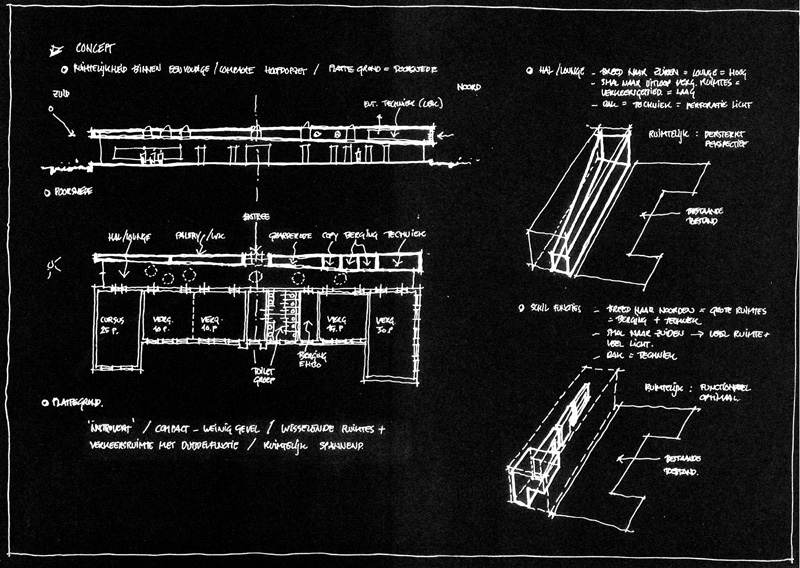 CONCEPT
RUIMTELIJKHEID BINNEN EENVOUDIGE / COMPACTE HOOFDOPZET / PLATTE GROND = DOORSNEDE
ZUID
NOORD
EVT. TECHNIEK (LBK)
DOORSNEDE
ENTREE
HAL/LOUNGE
PANTRY +
GARDEROBE
COPY
BERGING
TECHNIEK
CURSUS
25 P.
VERG.
10 P.
VERG.
10 P.
VERG.
15 P.
VERG.
30 P.
TOILET
GROEP
BERGING
EHBO
PLATTEGROND.
'INTROVERT' / COMPACT - WEINIG GEVEL / WISSELENDE RUIMTES +
VERKEERSRUIMTE MET DUBBELFUNCTIE / RUIMTELIJK SPANNEND.
HAL/LOUNGE
- BREED NAAR ZUIDEN = LOUNGE = HOOG
- SMAL NAAR UITLOOP VERG. RUIMTES =
VERKEERSGEBIED = LAAG
- DAK = TECHNIEK = PERFORATIE LICHT
RUIMTELIJK : VERSTERKT
PERSPECTIEF
BESTAANDE
TOESTAND
SCHIL FUNCTIES
- BREED NAAR NOORDEN = GROTE RUIMTES
= BERGING + TECHNIEK
- SMAL NAAR ZUIDEN → VEEL RUIMTE +
VEEL LICHT.
- DAK = TECHNIEK
RUIMTELIJK : FUNCTIONEEL
OPTIMAAL.
BESTAANDE
TOESTAND.